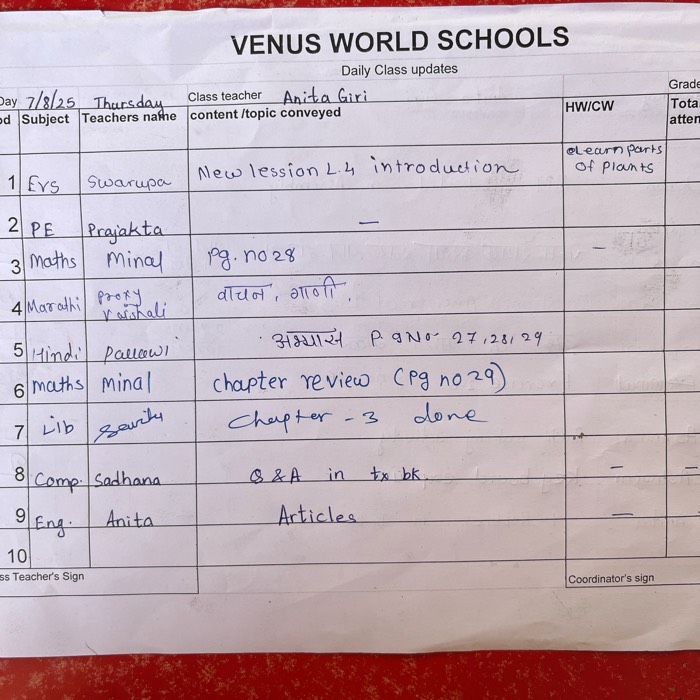 VENUS WORLD SCHOOLS
Daily Class updates
Day 7/8/25 Thursday Class teacher Anita Giri Grade
Subject Teachers name content /topic conveyed HW/CW
1 Evs Swarupa New lession L.4 introduction Learn parts of Plants
2 PE Prajakta —
3 Maths Minal Pg. no 28 –
4 Marathi Proxy Vaishali वाचन, गाणी.
5 Hindi Pallowi अभ्यास P. g No- 27, 28, 29
6 maths Minal chapter review (Pg no 29)
7 Lib Chapter - 3 done
8 Comp. Sadhana Q & A in tx bk. – –
9 Eng. Anita Articles —
10
Teacher's Sign Coordinator's sign